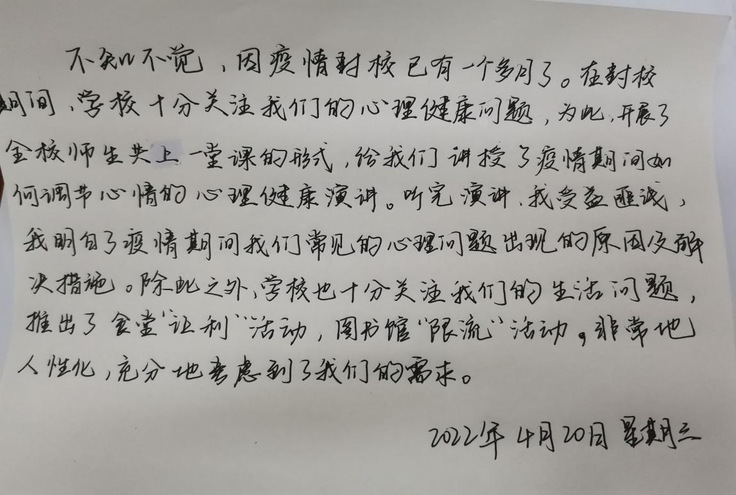 不知不觉，因疫情封校已有一个多月了。在封校
期间，学校十分关注我们的心理健康问题，为此，开展了
全校师生共上一堂课的形式，给我们讲授了疫情期间如
何调节心情的心理健康演讲。听完演讲，我受益匪浅，
我明白了疫情期间我们常见的心理问题出现的原因及解
决措施。除此之外，学校也十分关注我们的生活问题，
推出了食堂“让利”活动，图书馆“限流”活动。非常地
人性化，充分地考虑到了我们的需求。
2022年4月20日 星期三